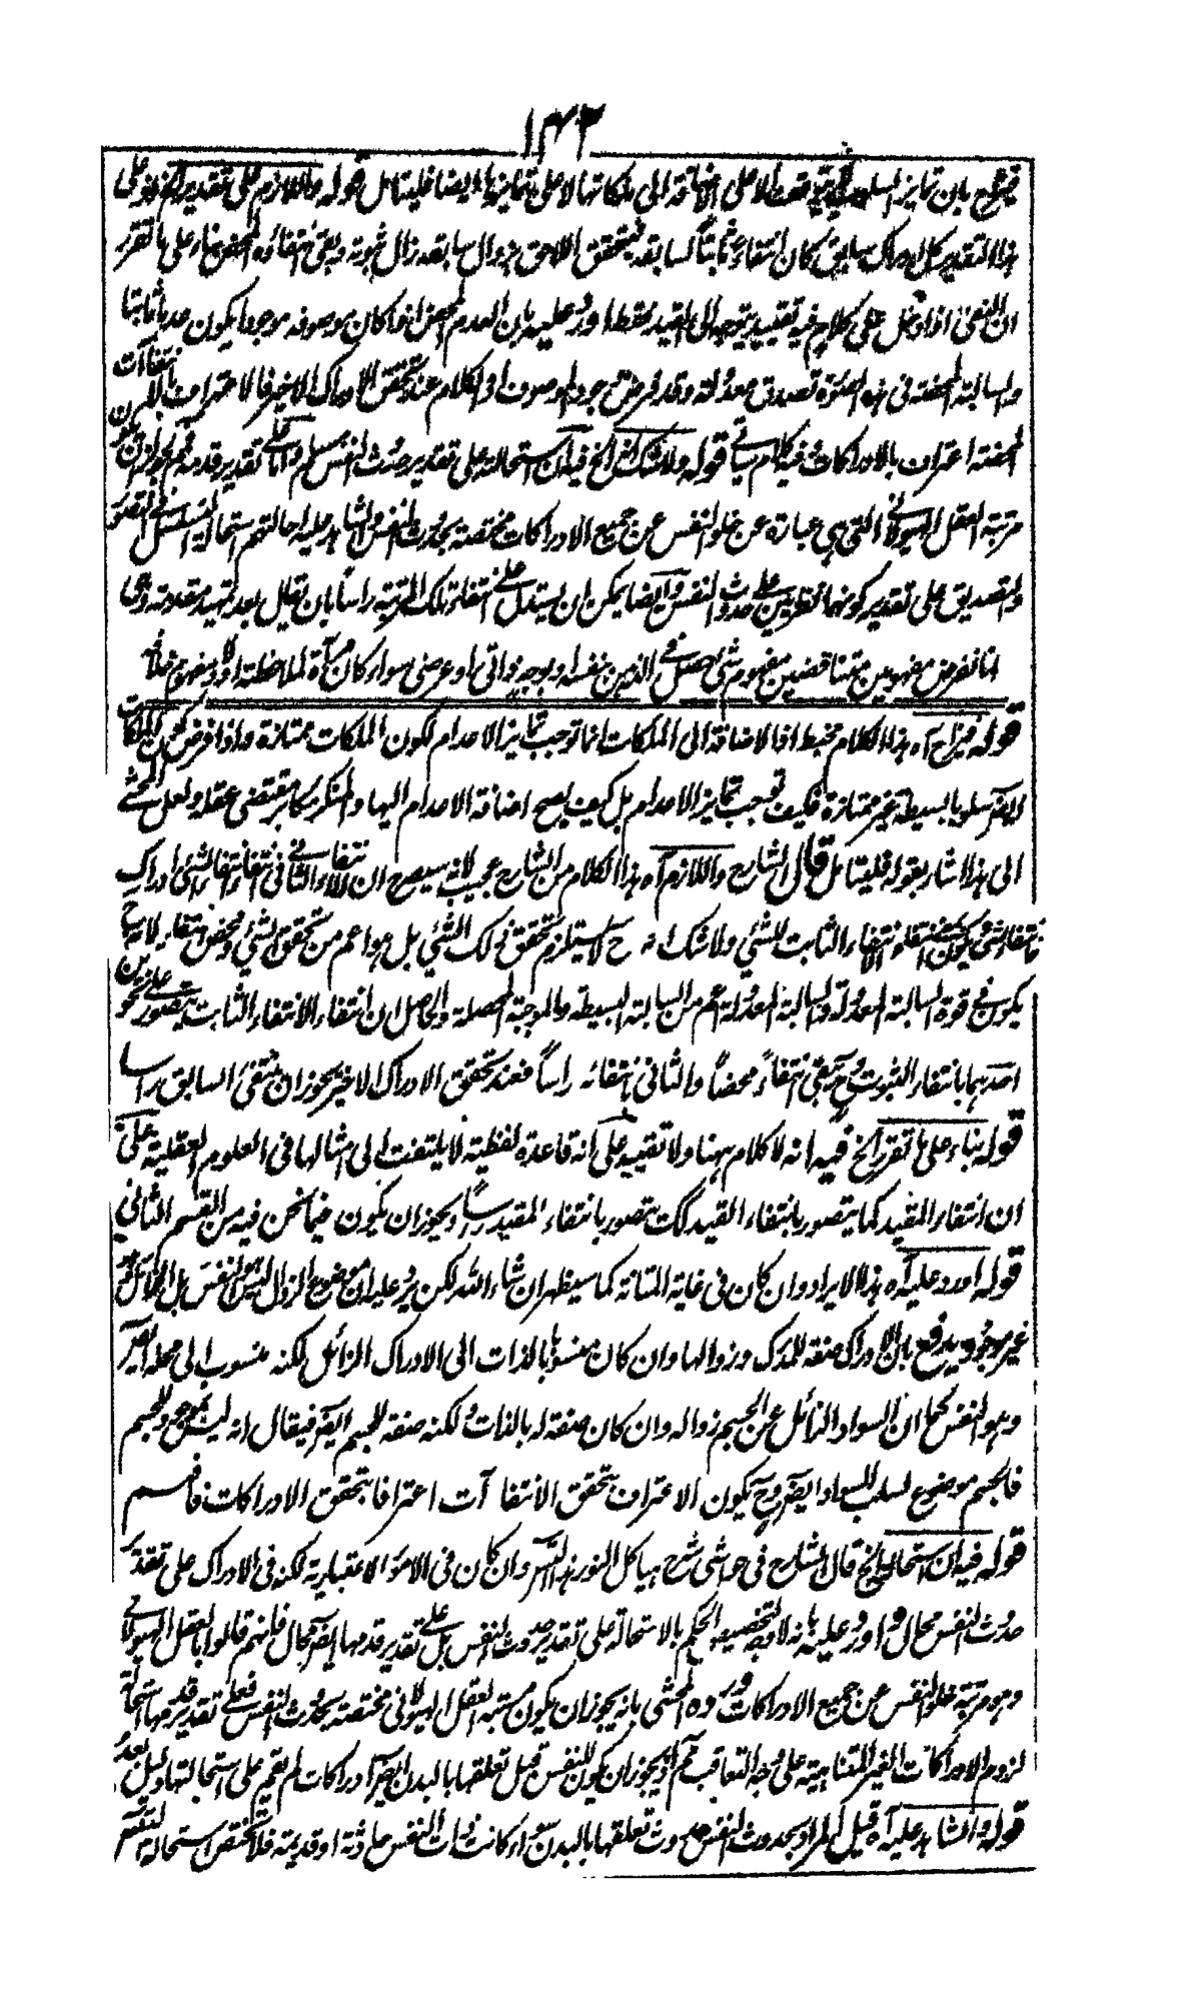 ١٤٣
بان تمايز السلوب فقط لا على الاضافة الى ملكاتها لا على تمايزها ايضا فليتامل قوله واللازم على تقدير الخ
هذا التقدير كل ادراك سابق كان انتفاء ثابتا لسابقه فيتحقق اللاحق بزوال سابقه زال ثبوته وبقى انتفاؤه المحض بناء على ما تقرر
ان النفى اذا دخل على كلام فيه تقييد يتوجه الى القيد فقط اورد عليه بان العدم المحض اذا كان موصوفه موجودا يكون عدما ثابتا
والسالبة المحضة فى هذه الصورة تصدق معدولة وقد فرض وجود الموصوف اذ الكلام عند تحقق الادراك الاخير فالاعتراف بالانتفاآت
المحضة اعتراف بالادراكات وفيه كلام سياتى قوله ولا شك الخ فيه ان استحالته على تقدير حدوث النفس مسلم واما على تقدير قدمه فمم لجواز ان يكون
مرتبة العقل الهيولانى التى هى عبارة عن خلو النفس عن جميع الادراكات مختصة بحدوث النفس والشاهد عليه احالتهم استحالة التسلسل فى التصور
والتصديق على تقدير كونهما نظريين على حدوث النفس وايضا يمكن ان يستدل على انتفاء تلك المرتبة راسا بان يقال بعد تمهيد مقدمة وهى
انا نفرض مفهومين متناقضين مفهوم شئ حصل فى الذهن بنفسه او بوجه ذاتى او عرضى سواء كان مرآة لملاحظته اولا ومفهوم
قوله آه هذا الكلام مخبط اذ الاضافة الى الملكات انما توجب تمايز الاعدام لكون الملكات ممتازة واذا فرض كون الملكات
سلوبا بسيطة غير ممتازة فكيف توجب تمايز الاعدام بل كيف يصح اضافة الاعدام اليها والمنكر مكابر مقتضى عقله ولعل المحشى
الى هذا اشار بقوله فليتامل قال الشارح واللازم آه هذا الكلام من الشارح عجيب لانه سيصرح ان الانتفاء الثانى انتفاء انتفاء الشئ ادراك
انتفاء شئ يكون انتفاء الانتفاء الثابت للشئ ولا شك انه ح لا يستلزم تحقق ذلك الشئ بل هو اعم من تحقق الشئ ومحض انتفاء لانه ح
يكون فى قوة السالبة المعدولة والسالبة المعدولة اعم من السالبة البسيطة والموجبة المحصلة والحاصل ان انتفاء الانتفاء الثابت يتصور على نحوين
احدهما بانتفاء الثبوت وح يبقى انتفاء محضا والثانى بانتفائه راسا فعند تحقق الادراك الاخير يجوز ان ينتفى السابق راسا
قوله بناء على ما تقرر الخ فيه انه لا كلام ههنا ولا تقييد على انه قاعدة لفظية لا يلتفت الى امثالها فى العلوم العقلية على
ان انتفاء المقيد كما يتصور بانتفاء القيد كك يتصور بانتفاء المقيد راسا ويجوز ان يكون فيما نحن فيه من القسم الثانى
قوله اورد عليه آه هذا الايراد وان كان فى غاية المتانة كما سيظهر ان شاء الله لكن يرد عليه ان موضوع الزوال ليس هو النفس بل
غير موجود ويدفع بان الادراك صفة للمدرك وزوالها وان كان منسوبا بالذات الى الادراك الزائل لكنه منسوب الى محله ايضا
وهو النفس كما ان السواد الزائل عن الجسم زواله وان كان صفة له بالذات ولكنه صفة للجسم ايضا فيقال انه ليس بموجود للجسم
فالجسم موضوع لسلب السواد ايضا وح يكون الاعتراف بتحقق الانتفاآت اعترافا بتحقق الادراكات فافهم
قوله فيه ان استحالته الخ قال الشارح فى حواشى شرح هياكل النور هذا التسلسل وان كان فى الامور الاعتبارية لكنه فى الادراك على تقدير
حدوث النفس محال واورد عليه بانه لا وجه لتخصيص الحكم بالاستحالة على تقدير حدوث النفس بل على تقدير قدمها ايضا محال فانهم قالوا بالعقل الهيولانى
وهو مرتبة خلو النفس عن جميع الادراكات ورده المحشى بانه يجوز ان يكون مرتبة العقل الهيولانى مختصة بحدوث النفس فعلى تقدير قدمها استحالة
لزوم الادراكات الغير المتناهية على وجه التعاقب مم اذ يجوز ان يكون للنفس قبل تعلقها بالبدن ايضا ادراكات لم يقم على استحالتها دليل بعد
قوله والشاهد عليه آه قيل المراد بحدوث النفس حدوث تعلقها بالبدن سواء كانت ذات النفس حادثة او قديمة فلا يختص استحالة